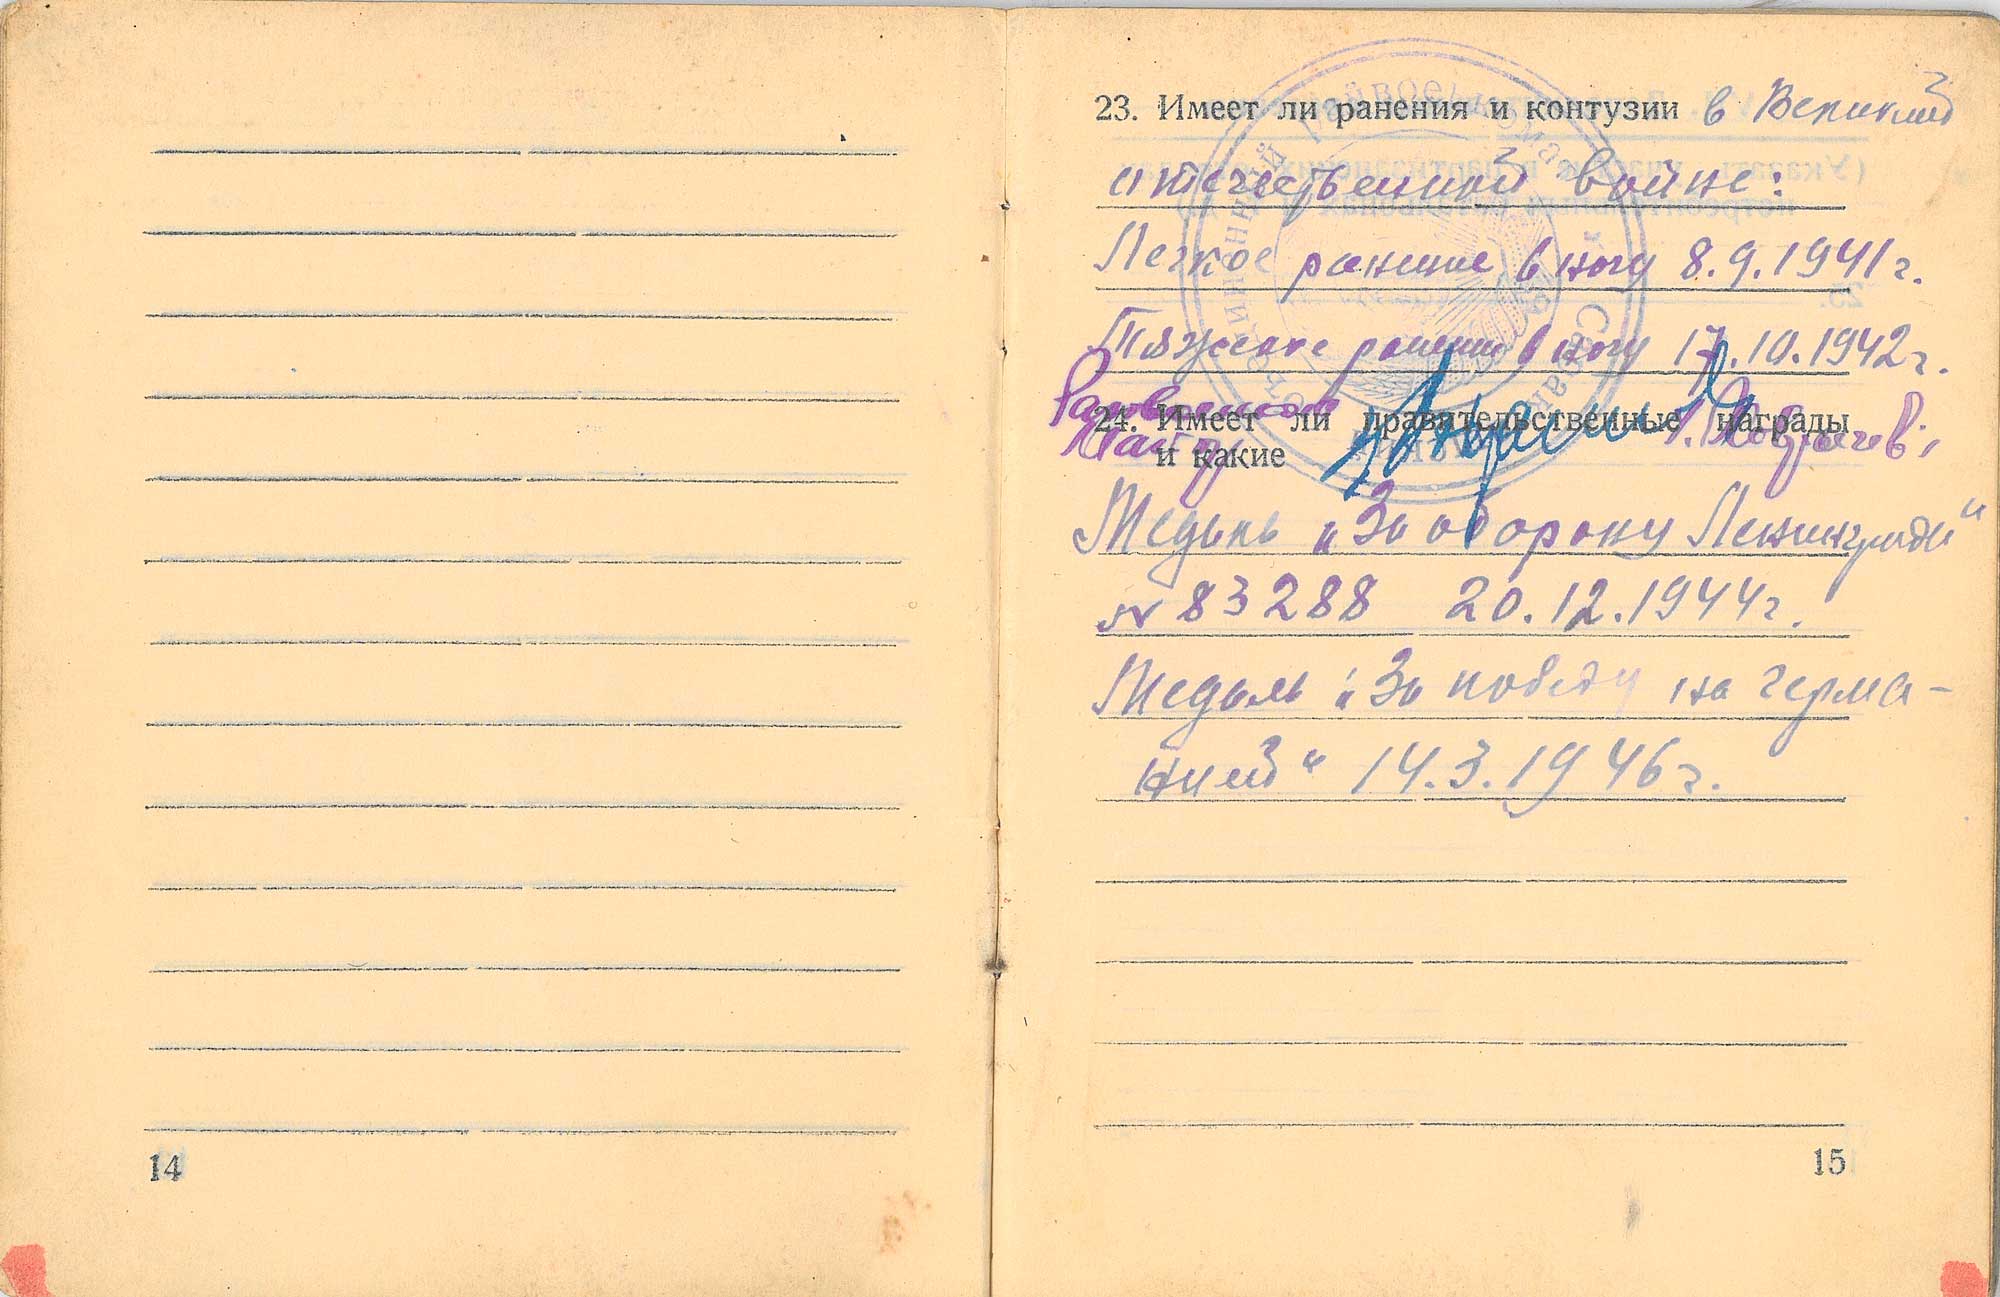 23. Имеет ли ранения и контузии в Великой
отечественной войне:
Легкое ранение в ногу 8.9.1941г.
Тяжелое ранение в ногу 17.10.1942г.
24. Имеет ли правительственные награды
и какие
Медаль „За оборону Ленинграда“
N 83288 20.12.1944г.
Медаль „За победу на герма-
нией“ 14.3.1946г.
14
15